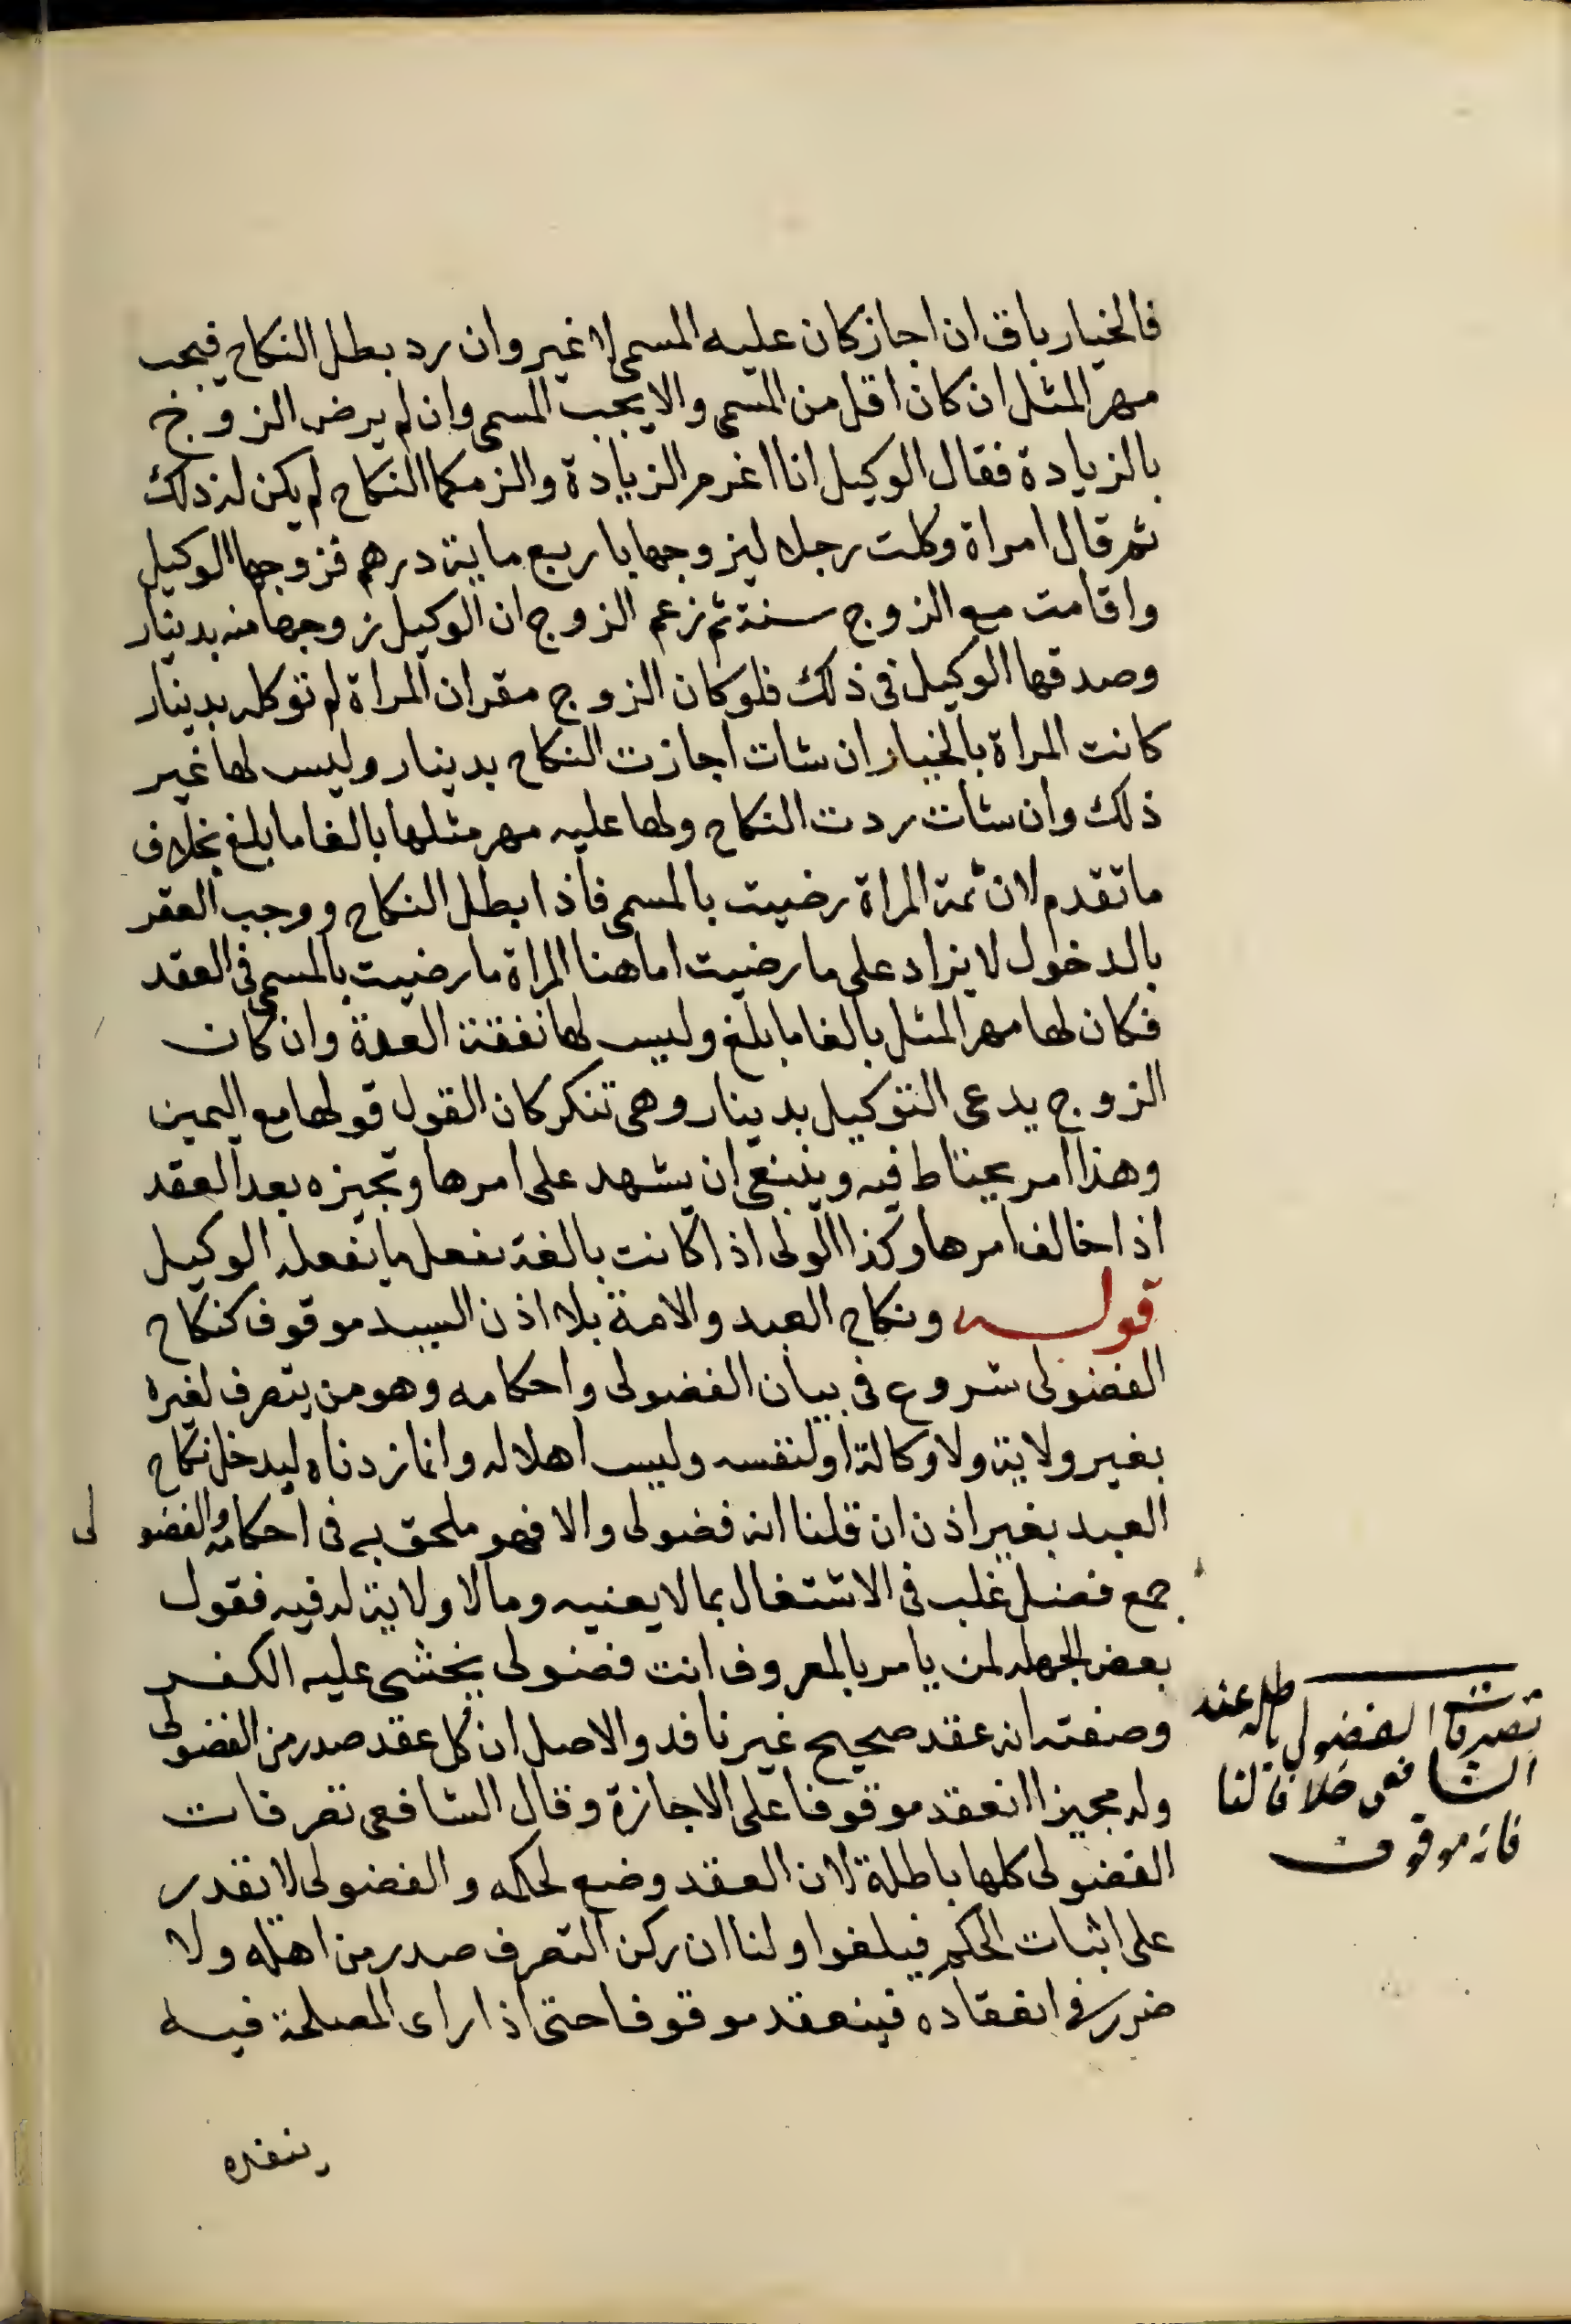 فالخيار باق ان اجاز كان عليه المسمى لا غير وان رد بطل النكاح فيجب
مهر المثل ان كان اقل من المسمى والا يجب المسمى وان لم يرض الزوج
بالزيادة فقال الوكيل انا اغرم الزيادة والزمكما النكاح لم يكن له ذلك
ثم قال امراة وكلت رجلا ليزوجها باربع ماية درهم فزوجها الوكيل
واقامت مع الزوج سنة ثم زعم الزوج ان الوكيل زوجها منه بدينار
وصدقها الوكيل فى ذلك فلو كان الزوج مقر ان المراة لم توكله بدينار
كانت المراة بالخيار ان شات اجازت النكاح بدينار وليس لها غير
ذلك وان شات ردت النكاح ولها عليه مهر مثلها بالغا ما بلغ بخلاف
ما تقدم لان ثمة المراة رضيت بالمسمى فاذا بطل النكاح ووجب العقر
بالدخول لا يزاد على ما رضيت اما هنا المراة ما رضيت بالمسمى فى العقد
فكان لها مهر المثل بالغا ما بلغ وليس لها نفقة العدة وان كان
الزوج يدعى التوكيل بدينار وهى تنكر كان القول قولها مع اليمين
وهذا امر يحتاط فيه وينبغى ان يشهد على امرها وتجيزه بعد العقد
اذا خالف امرها وكذا الولى اذا كانت بالغة يفعل ما يفعله الوكيل
قوله ونكاح العبد والامة بلا اذن السيد موقوف كنكاح
الفضولى شروع فى بيان الفضولى واحكامه وهو من يتصرف لغيره
بغير ولاية ولا وكالة او لنفسه وليس اهلا له وانما زدناه ليدخل نكاح
العبد بغير اذن ان قلنا انه فضولى والا فهو ملحق به فى احكامه والفضو لى
جمع فضل غلب فى الاشتغال بما لا يعنيه وما لا ولاية له فيه فقول
بعض الجهله لمن يامر بالمعروف انت فضولى يخشى عليه الكفر
وصفته انه عقد صحيح غير نافد والاصل ان كل عقد صدر من الفضولى
وله مجيزا انعقد موقوفا على الاجازة وقال الشافعى تصرفات
الفضولى كلها باطلة لان العقد وضع لحكمه والفضولى لا تقدر
على اثبات الحكم فيلغوا ولنا ان ركن التصرف صدر من اهله ولا
ضرر فى انعقاده فينعقد موقوفا حتى اذا راى المصلحة فيه
ينفده
تصرفات الفضولى باطله عند
الشافعى خلافا لنا
فانه موقوف